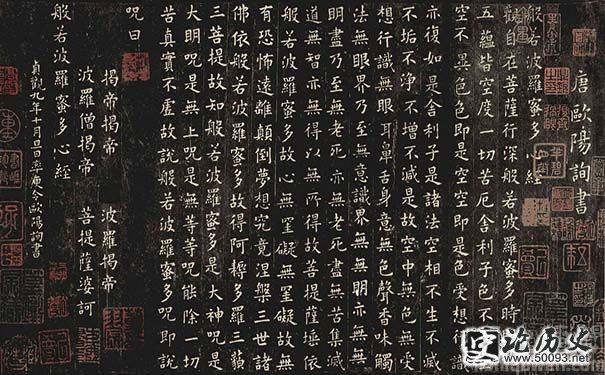 唐歐陽詢書
般若波羅蜜多心經
觀自在菩薩行深般若波羅蜜多時
五蘊皆空度一切苦厄舍利子色不
空不異色色即是空空即是色受想
識
亦復如是舍利子是諸法空相不生不滅
不垢不淨不增不減是故空中無色無受
想行識無眼耳鼻舌身意無色聲香味觸
法無眼界乃至無意識界無無明亦無無
明盡乃至無老死亦無老死盡無苦集滅
道無智亦無得以無所得故菩提薩埵依
般若波羅蜜多故心無罣礙無罣礙故無
有恐怖遠離顛倒夢想究竟涅槃三世諸
佛依般若波羅蜜多故得阿耨多羅三藐
三菩提故知般若波羅蜜多是大神咒是
大明咒是無上咒是無等等咒能除一切
苦真實不虛故說般若波羅蜜多咒即說
呪曰
揭帝揭帝 波羅揭帝
波羅僧揭帝 菩提薩婆訶
般若波羅蜜多心經
貞觀九年十月旦日率更令歐陽詢書
论历史
www.50093.net